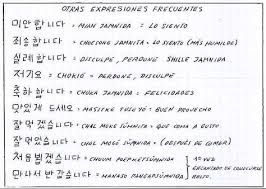 OTRAS EXPRESIONES FRECUENTES
미안합니다 = MIAN JAMNIDA = LO SIENTO
죄송합니다 = CHUESONG JAMNITA = LO SIENTO (MÁS HUMILDE)
실례합니다 = DISCULPE, PERDONE SHILLE JAMNIDA
저기요 = CHOKIO = PERDONE, DISCULPE
축하합니다 = CHUKA JAMNIDA = FELICIDADES
맛있게 드세요 = MASITKE TUSEYO = BUEN PROVECHO
잘 먹겠습니다 = CHAL MOKE SÜMNITA = QUE COMA A GUSTO
잘 먹었습니다 = CHAL MOGÉ SÜMNIDA = (DESPUÉS DE COMER)
처음 뵙겠습니다 = CHOUM POEPKETSÜMNIDA 1ª VEZ
만나서 반갑습니다 = MANASO PANGAPSÜMNIDA ENCANTADO DE CONOCERLE